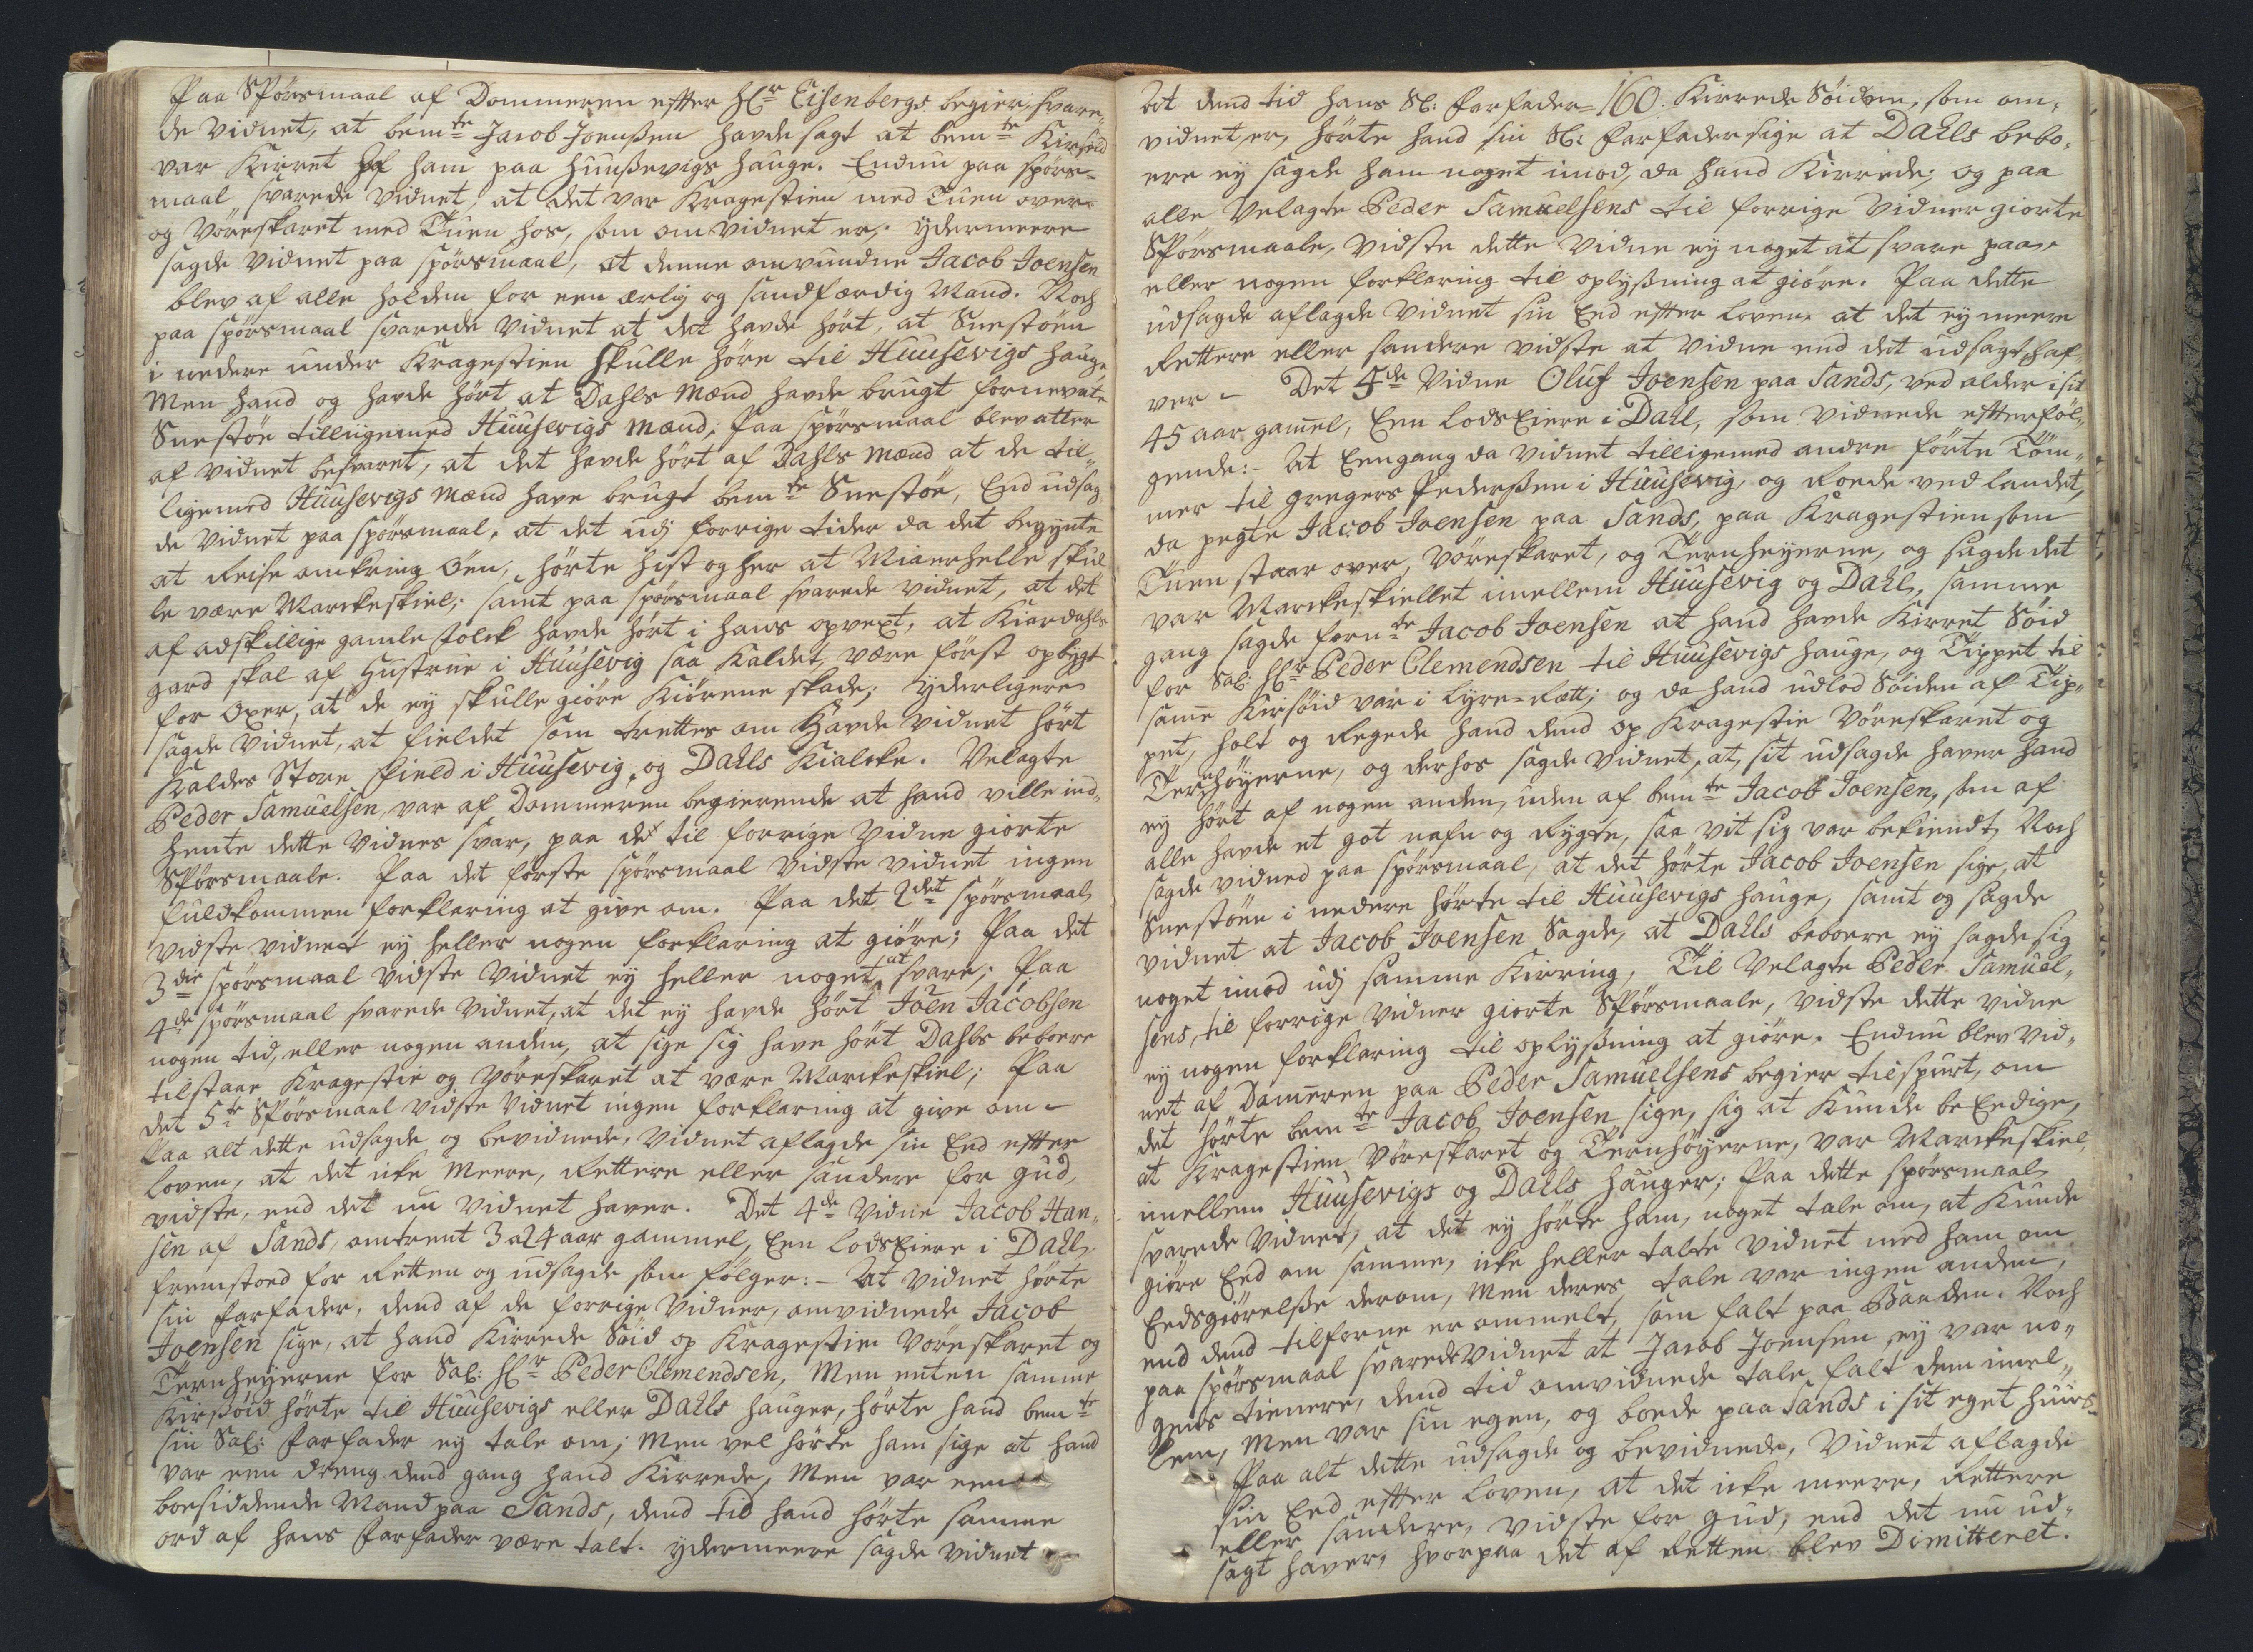 Paa Spörsmaal af Dommeren efter Hr Eisenbergs begier, svare,
de Vidnet, at bemte Jacob Joenßen havde sagt at bemte Kirsöid
var Kirret af ham paa Huußevigs Hauge. Endnu paa spörs-
maal svarede Vidnet, at det var Kragestien med Tuen over
og Vöreskaret med Tuen hos, som omvidnet er, ydermeere
sagde Vidnet paa spörsmaal, at denne omvundne Jacob Joensen
blev af alle holden for een ærlig og sandfærdig Mand. Noch
paa spörsmaal svarede Vidnet at det havde hört, at Snestöen
i nedere under Kragestien skulle höre til Huusevigs Hauge
Men hand og havde hört at Dahls Mænd havde brugt fornevnte
Snestöe tilligemed Huusevigs Mænd; Paa spörsmaal blev atter
af Vidnet besvaret, at det havde hört af Dahls Mænd at de til-
ligemed Huusevigs Mænd have brugt bemte Snestöe, End udsag
de Vidnet paa spörsmaal, at det udj forrige tider da det begynte
at Reise omkring Öen, hörte hist og her at Miaerhelle skul
le være Marckeskiel; samt paa spörsmaal svarede Vidnet, at det
af adskillige gamle folck havde hört i hans opvext, at Kiardahls
gard skal af Hustrue i Huusevig saa Kaldet, være först opbygt
for Oxer, at de ey skulle giöre Kiörene skade; yderligere
sagde Vidnet, at fieldet som trettes om Havde Vidnet hört
Kaldes Store Field i Huusevig, og Dahls Kialcke. Velagte
Peder Samuelsen, var af Dommeren begierende at hand ville ind-
hente dette Vidnes svar, paa det til forrige Vidne giorte
Spörsmaale. Paa det förste spörsmaal vidste vidnet ingen
fuldkommen forklaring at give om. Paa det 2det spörsmaal
vidste vidnet ey heller nogen forklaring at giöre; Paa det
3die spörsmaal vidste Vidnet ey heller noget at svare; Paa
4de spörsmaal svarede Vidnet, at det ey havde hört Joen Jacobsen
nogen tid, eller nogen anden, at sige sig have hört Dahls beboere
tilstaae Kragestie og Vöreskaret at være Marckeskiel; Paa
det 5te Spörsmaal vidste Vidnet ingen forklaring at give om -
Paa alt dette udsagde og bevidnede, Vidnet aflagde sin Eed efter
Loven, at det icke Meere, Rettere eller sandere for Gud,
vidste, end det nu Vidnet haver. Det 4de Vidne Jacob Han-
sen af Sands, omtrent 3 a 24 aar gammel, Een LodsEiere i Dahl
fremstoed for Retten og udsagde som fölger: - At Vidnet hörte
sin farfader, dend af de forrige Vidner, omvidnede Jacob
Joensen sige, at hand Kirrede Söid op Kragestien Vöreskaret og
Ternheyerne for Sal: Hr Peder Clemendsen, Men enten samme
Kirsöid hörte til Huusevigs eller Dahls Hauger, hörte hand bemte
sin Sal: Farfader ey tale om; Men vel hörte ham sige at hand
var een dreng dend gang hand Kirrede, Men var een
boesiddende Mand paa Sands, dend tid hand hörte samme
ord af hans Farfader være talt. ydermeere sagde Vidnet
160.
at dend tid hans Sl: farfader Kirrede Söiden, som om-
vidnet er, hörte hand sin Sl: farfader sige at Dahls bebo-
ere ey sagde ham noget imod, da hand Kirrede; og paa
alle Velagte Peder Samuelsens til forrige Vidner giorte
Spörsmaale, vidste dette Vidne ey noget at svare paa,
eller nogen forklaring til oplyßning at giöre. Paa dette
udsagde aflagde Vidnet sin Eed efter Loven, at det ey meere
Rettere eller sandere vidste at vidne end det udsagt haf-
ver - Det 5de Vidne Oluf Joensen paa Sands, ved alder i sit
45 aar gamel, Een LodsEiere i Dahl, som vidnede efterföl-
gende: - At Eengang da Vidnet tilligemed andre förte Töm-
mer til Gregers Pederßen i Huusevig, og Roede ved Landet,
da pegte Jacob Joensen paa Sands, paa Kragestien som
Tuen staar over, Vöreskaret, og Ternheyerne, og sagde det
var Marckeskiellet imellem Huusevig og Dahl, samme
gang sagde fornte Jacob Joensen at hand havde Kirret Söid
for Sal: Hr Peder Clemendsen til Huusevigs Hauge, og Tippet til
same Kirsöid var i Lyre-Rætt; og da hand udlod Söiden af Tip-
pet, holt og Regede hand dend op Kragestie Vöreskaret og
Ternhöyerne, og derhos sagde Vidnet, at sit udsagde haver hand
ey hört af nogen anden, uden af bemte Jacob Joensen, som af
alle havde et got nafn og Rygte, saa vit sig var bekiendt, Noch
sagde vidned paa spörsmaal, at det hörte Jacob Joensen sige, at
Snestöen i nedere hörte til Huusevigs Hauge, samt og sagde
vidnet at Jacob Joensen Sagde, at Dahls beboere ey sagde sig
noget imod udj samme Kirring, Til Velagte Peder Samuel-
sens, til forrige Vidner giorte Spörsmaale, vidste dette vidne
ey nogen forklaring til oplyßning at giöre. Endnu blev Vid-
net af Domeren paa Peder Samuelsens begier tilspurt, om
det hörte bemte Jacob Joensen sige, sig at Kunde beEedige,
at Kragestien Vöreskaret og Ternhöyerne, var Marckeskiel
imellem Huusevigs og Dahls Hauger; Paa dette spörsmaal
svarede Vidnet, at det ey hörte ham, noget tale om, at Kunde
giöre Eed om samme, icke heller talte Vidnet med ham om
Eedsgiörelße derom, Men deres tale var ingen anden,
end dend tilforne er ommelt, som falt paa Baaden. Noch
paa spörsmaal svarede Vidnet at Jacob Joensen ey var no-
gens tienere, dend tid omvidnede tale falt dem imel-
lem, Men var sin egen, og boede paa Sands i sit eget Huus-
Paa alt dette udsagde og bevidnede, Vidnet aflagde
sin Eed efter Loven, at det icke meere, Rettere
eller sandere, vidste for Gud, end det nu ud-
sagt haver, hvorpaa det af Retten blev Dimitteret.